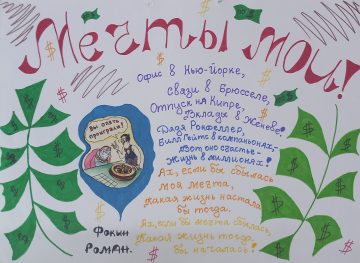 Мечты мои!
Офис в Нью-Йорке,
Связи в Брюсселе,
Отпуск на Кипре,
Вклады в Женеве!
Дядя Рокфеллер,
Билл Гейтс в компаньонах,-
Вот оно счастье-
Жизнь в миллионах!
Ах, если бы сбылась
моя мечта,
Какая жизнь настала
бы тогда.
Ах, если бы мечта сбылась,
Какая жизнь тогда
бы началась!
Вы опять
проиграли!
Фокин
Роман.